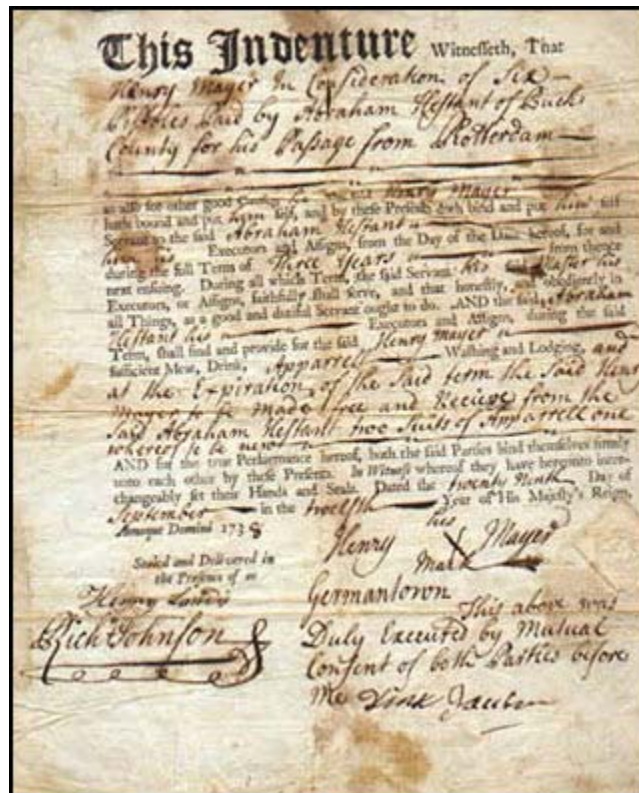 This Indenture Witnesseth, That
Henry Mayer In Consideration of Six
Pistoles Paid by Abraham Hestant of Bucks
County for his Passage from Rotterdam
as also for other good Henry Mayer
hath bound and put him self, and by these Presents doth bind and put him self
Servant to the said Abraham Hestant
his Executors and Assigns, from the Day of the Date hereof, for and
during the full Term of Three Years from thence
next ensuing. During all which Term, the said Servant his said Master his
Executors, or Assigns, faithfully shall serve, and that honestly, and obediently in
all Things, as a good and dutiful Servant ought to do. AND the said Abraham
Hestant his Executors and Assigns, during the said
Term, shall find and provide for the said Henry Mayer
sufficient Meat, Drink, Apparrell Washing and Lodging, and
at the Expiration of the Said term the Said Henry
Mayer to be made free and Recieve from the
Said Abraham Hestant two Suits of Apparrell one
whereof to be new
AND for the true Performance hereof, both the said Parties bind themselves firmly
unto each other by these Presents. In Witness whereof they have hereunto inter-
changeably set their Hands and Seals. Dated the twenty Ninth Day of
September in the twelfth Year of His Majesty's Reign,
Annoque Domini 1738
his
Henry X Mayer
Mark
Sealed and Delivered in
the Presence of us
Henry
Rich Johnson
Germantown
This above was
Duly Executed by Mutual
Consent of both Parties before
Me